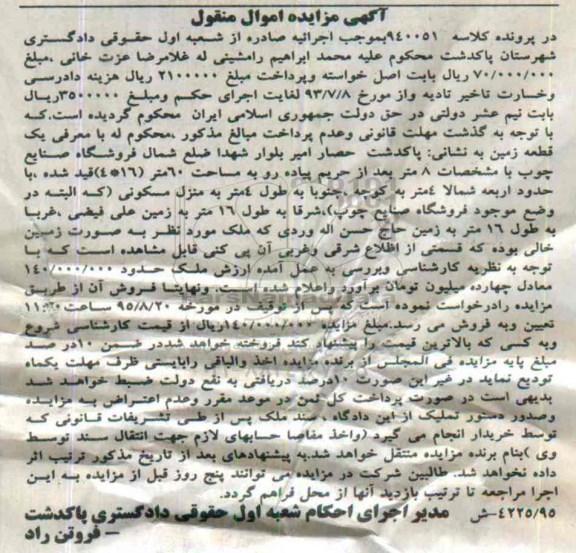 آگهی مزایده اموال منقول
در پرونده کلاسه ۹۴۰۰۵۱بموجب اجرائیه صادره از شعبه اول حقوقی دادگستری
شهرستان پاکدشت محکوم علیه محمد ابراهیم رامشینی له غلامرضا عزت خانی ،مبلغ
۷۰/۰۰۰/۰۰۰ ریال بابت اصل خواسته وپرداخت مبلغ ۲۱۰۰۰۰۰ ریال هزینه دادرسی
وخسارت تاخیر تادیه واز مورخ ۹۳/۷/۸ لغایت اجرای حکم ومبلغ ۳۵۰۰۰۰۰ریال
بابت نیم عشر دولتی در حق دولت جمهوری اسلامی ایران محکوم گردیده است.که
با توجه به گذشت مهلت قانونی وعدم پرداخت مبالغ مذکور ،محکوم له با معرفی یک
قطعه زمین به نشانی: پاکدشت حصار امیر بلوار شهدا ضلع شمال فروشگاه صنایع
چوب با مشخصات ۸ متر بعد از حریم پیاده رو به مساحت ۶۰متر (۱۶*۴)قید شده ،با
حدود اربعه شمالا ۴متر به کوچه ،جنوبا به طول ۴متر به منزل مسکونی (که البته در
وضع موجود فروشگاه صنایع چوب)،شرقا به طول ۱۶ متر به زمین علی فیضی ،غربا
به طول ۱۶ متر به زمین حاج حسن اله وردی که ملک مورد نظر به صورت زمین
خالی بوده که قسمتی از اظلاع شرقی وغربی آن پی کنی قابل مشاهده است که با
توجه به نظریه کارشناسی وبررسی به عمل آمده ارزش ملک حدود ۱۴۰/۰۰۰/۰۰۰
معادل چهارده میلیون تومان برآورد واعلام شده است. ونهایتا فروش آن از طریق
مزایده رادرخواست نموده است که پس از توقیف در مورخه ۹۵/۸/۲۰ ساعت ۱۱:۳۰
تعیین وبه فروش می رسد.مبلغ مزایده ۱۴۰/۰۰۰/۰۰۰ریال از قیمت کارشناسی شروع
وبه کسی که بالاترین قیمت را پیشنهاد کند فروخته خواهد شددر ضمن ۱۰در صد
مبلغ پایه مزایده فی المجلس از برنده مزایده اخذ والباقی رابایستی ظرف مهلت یکماه
تودیع نماید در غیر این صورت ۱۰درصد دریافتی به نفع دولت ضبط خواهد شد
بدیهی است در صورت پرداخت کل ثمن در موعد مقرر وعدم اعتراض به مزایده
وصدور دستور تملیک از این دادگاه ،سند ملک پس از طی تشریفات قانونی که
توسط خریدار انجام می گیرد (واخذ مفاصا حسابهای لازم جهت انتقال سند توسط
وی )بنام برنده مزایده منتقل خواهد شد.به پیشنهادهای بعد از تاریخ مذکور ترتیب اثر
داده نخواهد شد. طالبین شرکت در مزایده می توانند پنج روز قبل از مزایده به این
اجرا مراجعه تا ترتیب بازدید آنها از محل فراهم گردد.
۴۲۲۵/۹۵-ش مدیر اجرای احکام شعبه اول حقوقی دادگستری پاکدشت
– فروتن راد